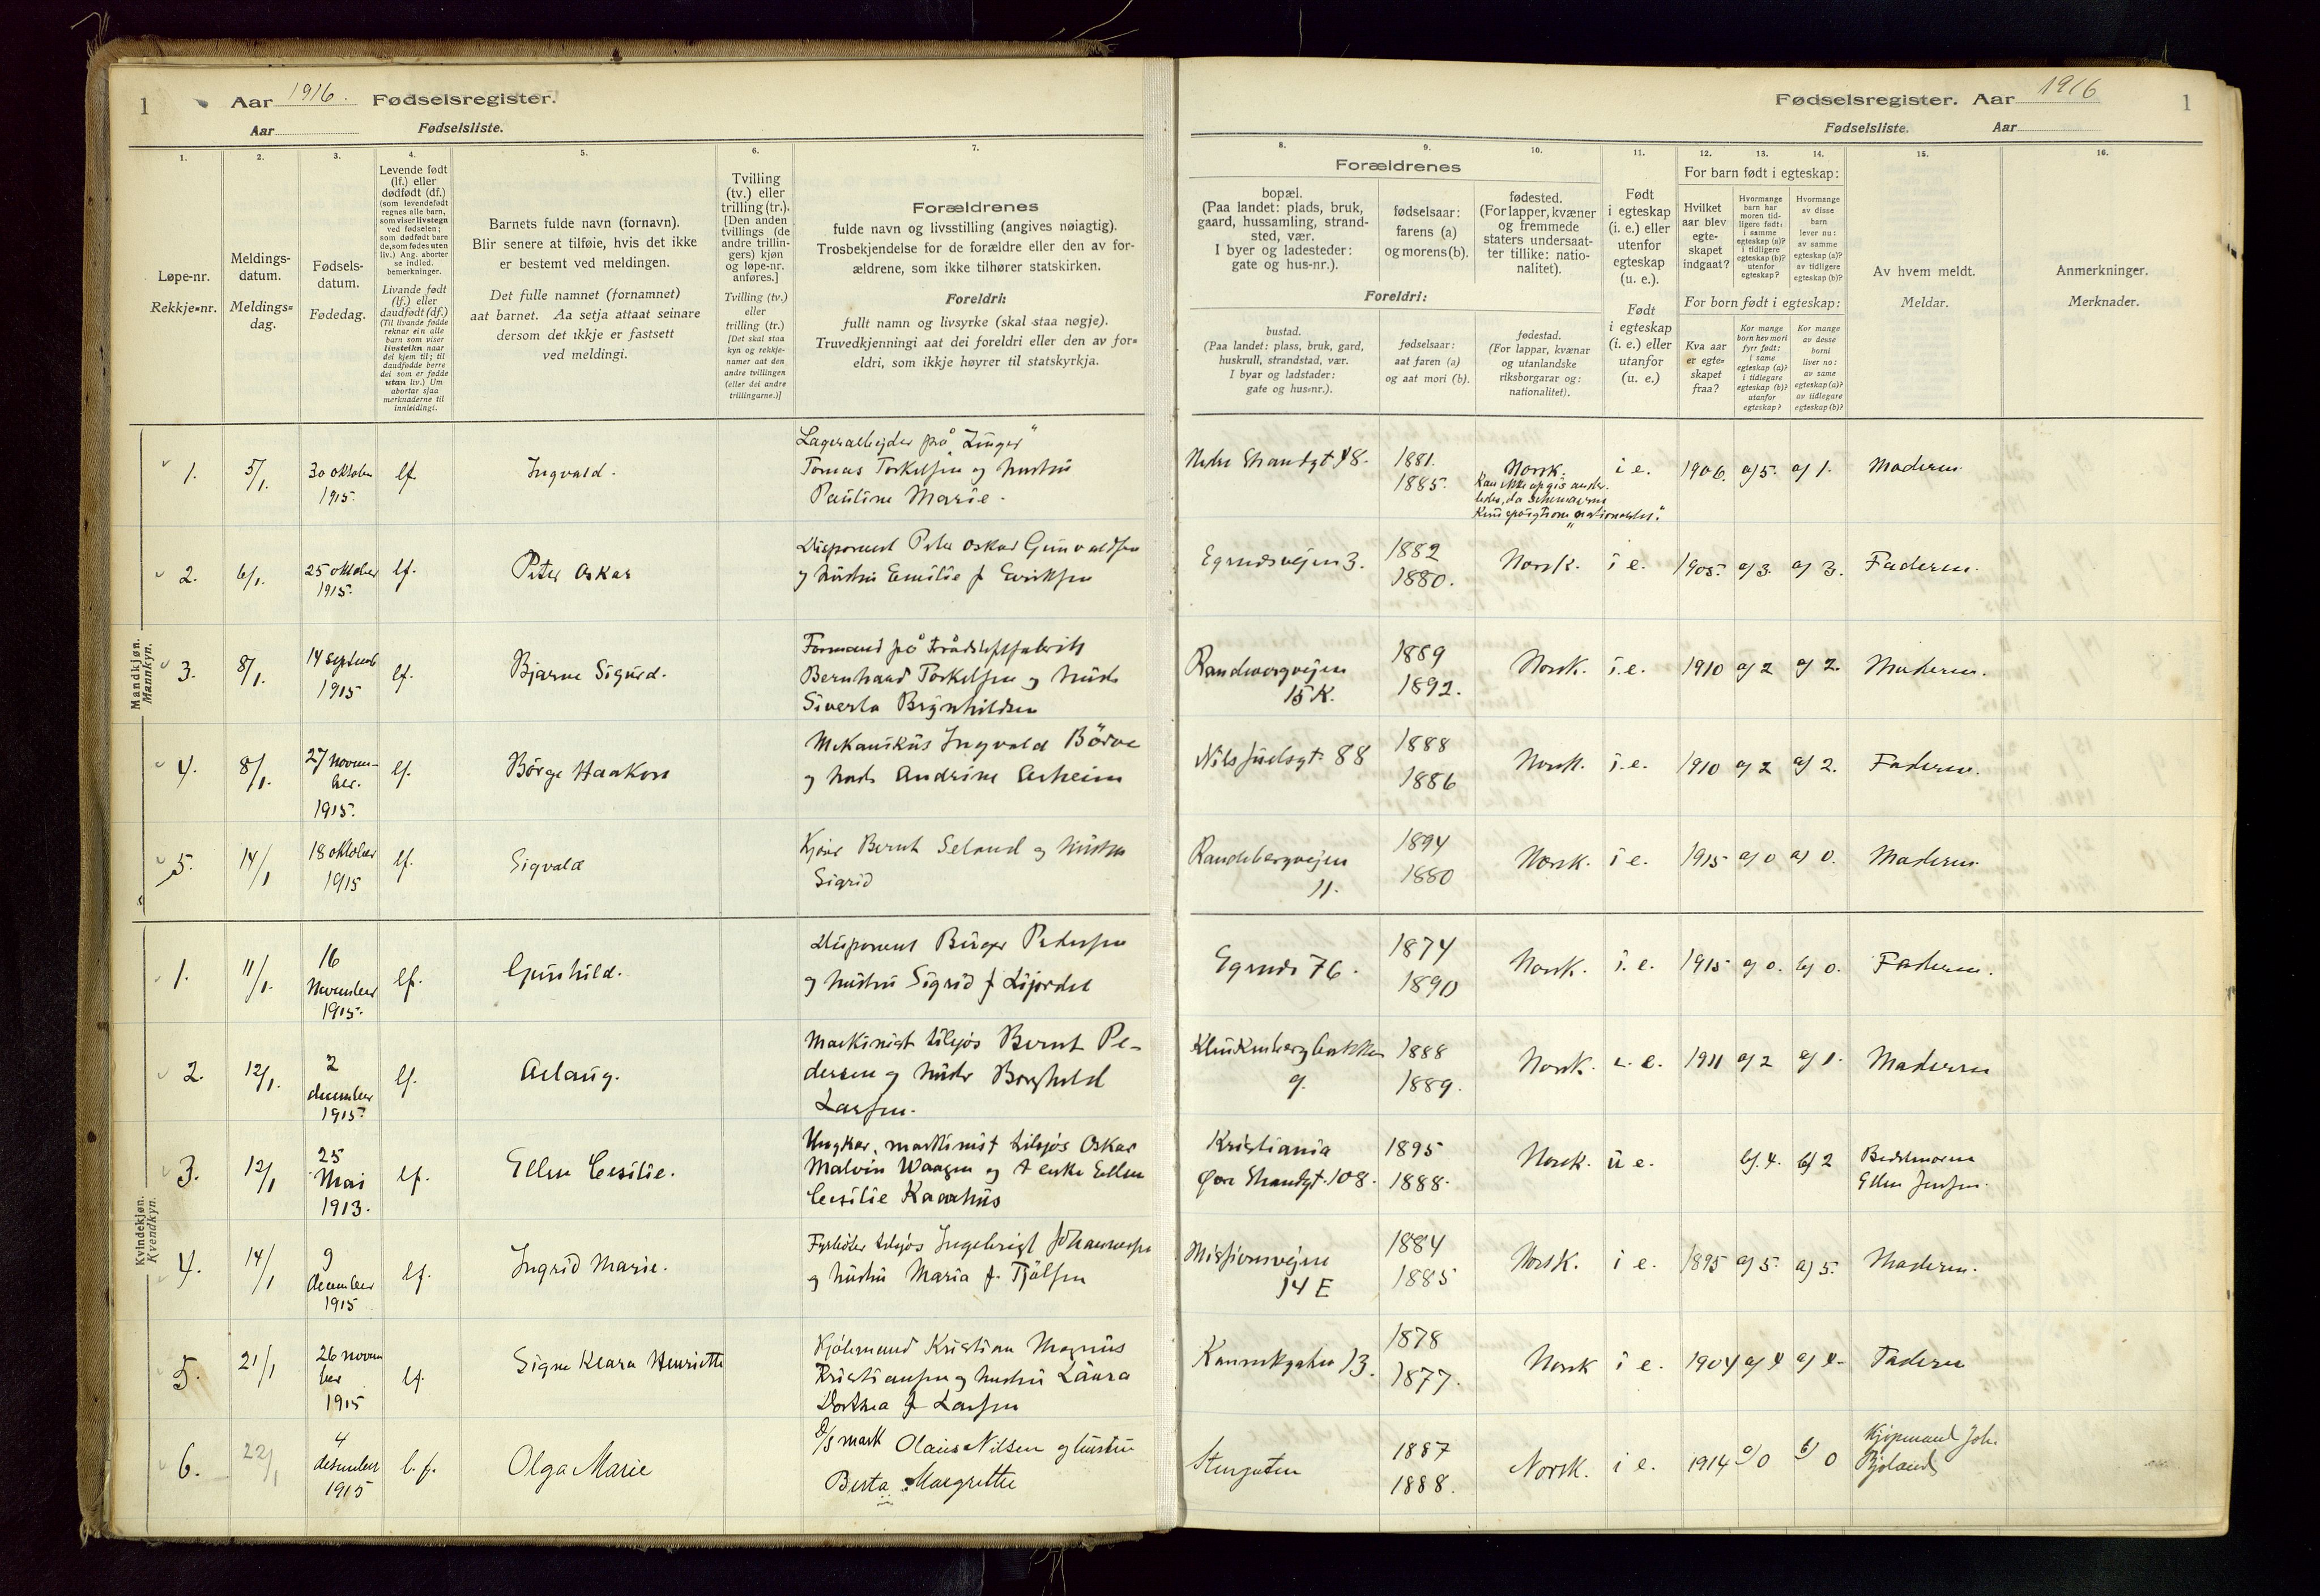 1
Aar 1916. Fødselsregister.
Aar Fødselsliste.
Fødselsregister. Aar 1916
1
Fødselsliste. Aar
1.
Løpe-nr.
Rekkje-nr.
2.
Meldings-
datum.
Meldings-
dag.
3.
Fødsels-
datum.
Fødedag.
4.
Levende født
(lf.) eller
dødfødt (df.)
(som levendefødt
regnes alle barn,
som viser livstegn
ved fødselen;
som dødfødt bare
de, som fødes uten
liv.) Ang. aborter
se indled.
bemerkninger.
Livande født
(lf.) eller
daudfødt (df.)
(Til livande fødde
reknar ein alle
barn som viser
livsteikn naar
dei kjem til; til
daudfødde berre
dei som er fødde
utan liv.) Um
abortar sjaa
merknaderne til
innleidingi.
5.
Barnets fulde navn (fornavn).
Blir senere at tilføie, hvis det ikke
er bestemt ved meldingen.
Det fulle namnet (fornamnet)
aat barnet. Aa setja attaat seinare
dersom det ikkje er fastsett
ved meldingi.
6.
Tvilling
(tv.) eller
trilling (tr.).
[Den anden
tvillings (de
andre trillin-
gers) kjøn
og løpe-nr.
anføres.]
Tvilling (tv.)
eller
trilling (tr.)
[Det skal staa
kyn og rekkje-
namer aat den
andre tvillingen
(eller dei andre
trillingarne.)]
7.
Forældrenes
fulde navn og livsstilling (angives nøiagtig).
Trosbekjendelse for de forældre eller den av for-
ældrene, som ikke tilhører statskirken.
Foreldri:
fullt namn og livsyrke (skal staa nøgje).
Truvedkjenningi aat dei foreldri eller den av for-
eldri, som ikkje høyrer til statskyrkja.
Forældrenes
8.
bopæl.
(Paa landet: plads, bruk,
gaard, hussamling, strand-
sted, vær.
I byer og ladesteder:
gate og hus-nr.).
9.
fødselsaar:
farens (a)
og morens (b).
10.
fødested.
(For lapper, kvæner
og fremmede
staters undersaat-
ter tillike: natio-
nalitet).
Foreldri:
bustad.
(Paa landet: plass, bruk, gard,
huskrull, strandstad, vær.
I byar og ladstader:
gate og hus-nr.).
fødselsaar:
aat faren (a)
og aat mori (b).
fødestad.
(For lappar, kvænar
og utanlandske
riksborgarar og:
nationalitet).
11.
Født
i egteskap
(i. e.) eller
utenfor
egteskap
(u. e.).
Født
i egteskap
(i. e.) eller
utanfor
(u. e.)
For barn født i egteskap:
12.
Hvilket
aar blev
egte-
skapet
indgaat?
13.
Hvormange
barn har
moren tid-
ligere født:
i samme
egteskap (a)?
i tidligere
egteskap (b)?
utenfor
egteskap?
14.
Hvormange
av disse
barn
lever nu:
av samme
egteskap (a)?
av tidligere
egteskap (b)?
For born født i egteskap:
Kva aar
er egte-
skapet
fraa?
Kor mange
born hev mori
fyrr født:
i same
egteskap (a)?
i tidlegare
egteskap (b)?
utanfor
egteskap?
Kor mange
av desse
borni
liver no:
av same
egteskap (a)?
av tidlegare
egteskap (b)?
15.
Av hvem meldt.
Meldar.
16.
Anmerkninger.
Merknader.
Mandkjøn.
Mannkyn.
1. 5/1. 30 oktober 1915. lf. Ingvald.
Lagerarbeider på "Zinger"
Tomas Torkelsen og hustru
Pauline Marie.
Nedre Strandgt 48. 1881. 1885. Norsk. i e. 1906. a) 5. a) 1. Moderen.
2. 6/1. 25 oktober 1915. lf. Peter Oskar
Disponent Peter Oskar Gunvaldsen
og hustru Emilie f Eriksen
Egendsvejen 3. 1882 1880. Norsk. i e. 1905. a) 3. a) 3. Faderen.
3. 8/1. 14 septemb 1915 lf. Bjarne Sigurd.
Formand på
Bernhard Torkelsen og hustr
Siverta Brynhildsen
15 K. 1889 1892. Norsk. i. e. 1910 a) 2 a) 2. Moderen.
4. 8/1. 27 novem-ber. 1915. lf. Børge Haakon
Mekanikus Ingvald Börve
og hustr Andrine
Nils Juelsgt. 88 1888 1886 Norsk. i. e. 1910 a) 2 a) 2. Faderen.
5. 14/1 18 oktober 1915 lf. Sigvald
Kjører Bernt Seland og hustru
Sigrid
Randebergvejen 11. 1894 1880 Norsk. i e. 1915 a) 0 a) 0. Moderen.
Kvindekjøn.
Kvendkyn.
1. 11/1. 16 November 1915. lf. Gunhild.
Disponent Birger Pedersen
og hustru Sigrid f
Egends 76. 1874 1890 Norsk. i. e. 1915 a) 0. b) 0. Faderen.
2. 12/1. 2 december 1915. lf. Aslaug.
Maskinist tilsjøs Bernt Pe-
dersen og hustr Borghild
Larsen.
9. 1888 1889. Norsk. i. e. 1911 a) 2 a) 1. Moderen
3. 12/1 25 Mai 1913. lf. Ellen Cesilie.
Ungkar, maskinist tilsjøs Oskar
Malvin Waagen og Enke Ellen
Cesilie Kaarhus
Kristiania
Øvre Strandgt. 108. 1895 1888. Norsk. u e. b). 4. b) 2 Bedstmoren
Ellen Jensen.
4. 14/1 9 december 1915 lf. Ingrid Marie.
Fyrbøter tilsjøs Ingebrigt Johannesen
og hustru Maria f. Tjölsen
Missionsvejen 14 E 1884 1885 Norsk. i e. 1895 a) 5. a) 5. Moderen.
5. 21/1 26 novem ber 1915 lf. Signe Klara Henriette
Kjøbmand Kristian Magnus
Kristiansen og hustru Laura
Dorthea f Larsen
13. 1878 1877. Norsk i e. 1904 a) 4 a) 4. Faderen
6. 22/1 4 desember 1915 l. f. Olga Marie
Olaus Nilsen og hustru
Berta Margrethe
1887 1888. Norsk. i e. 1914 a) 0 b) 0 Kjøpmand Joh.
Bjeland